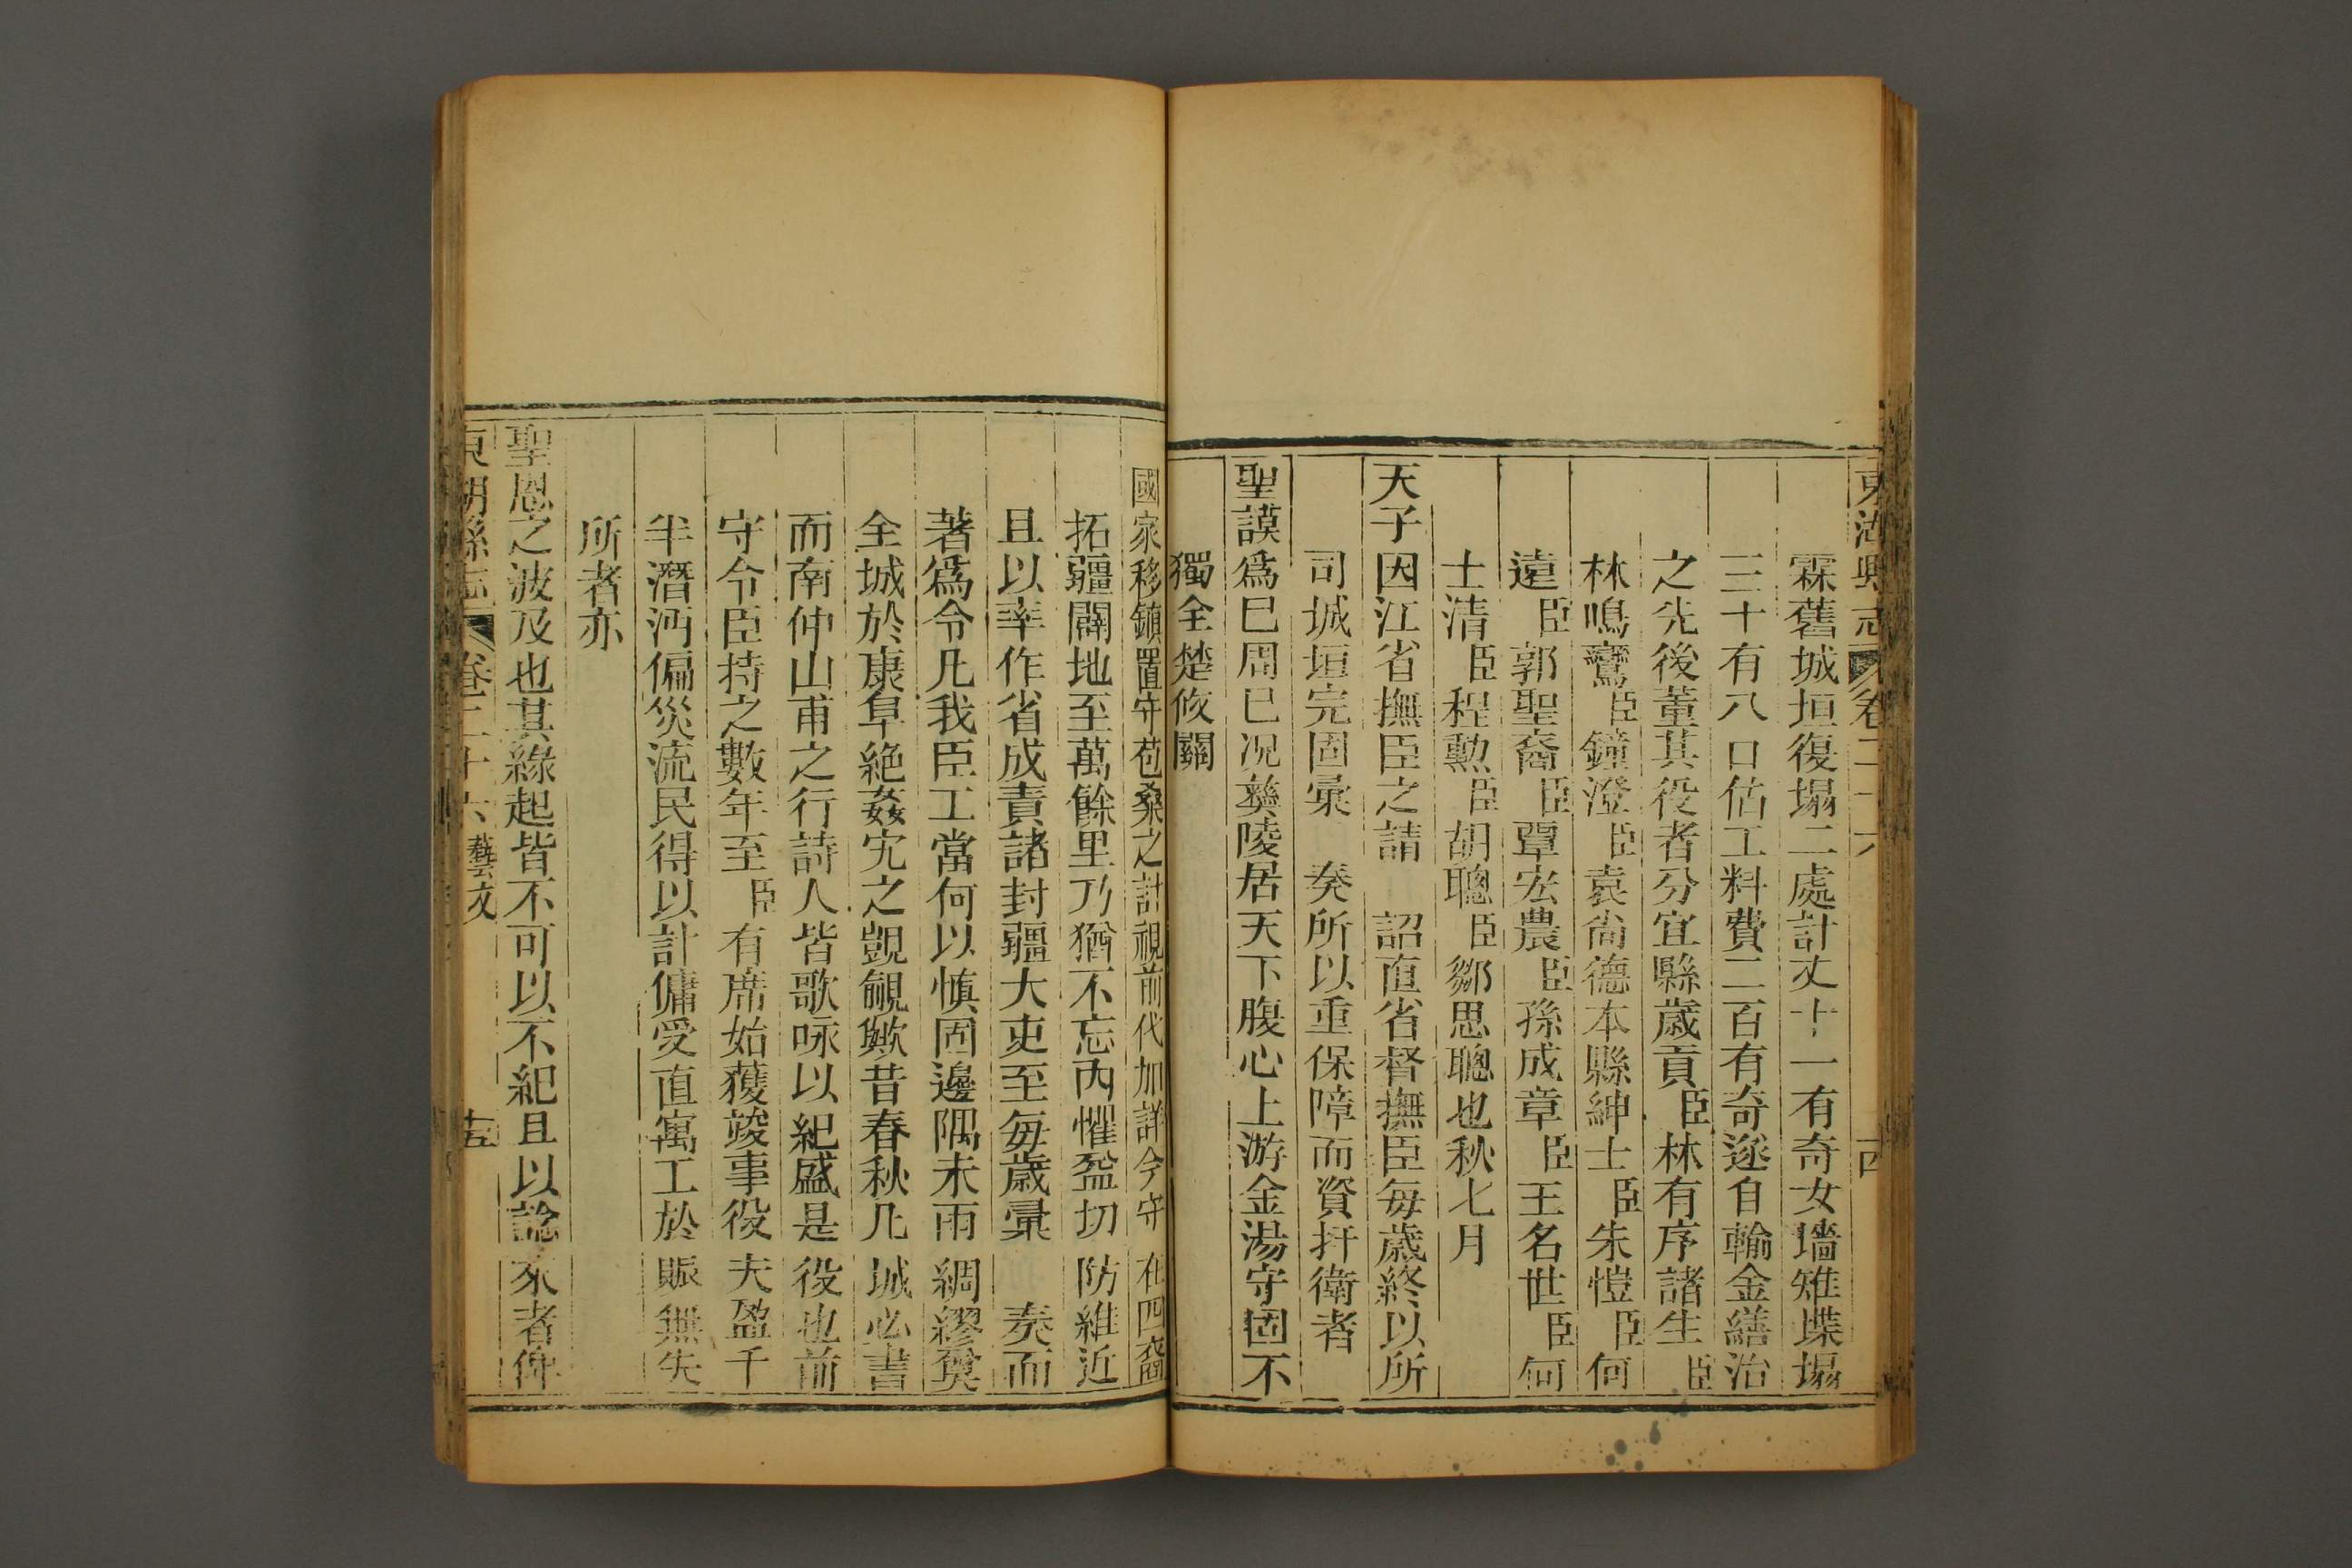 東湖縣志 卷二十六 十四
霖舊城垣復塌二處計丈十一有奇女墻雉堞塌
三十有八口估工料費二百有奇逐自輸金繕治
之先後董其役者分宜縣歲貢臣林有序諸生臣
林鳴鸞臣鐘澄臣袁尚德本縣紳士臣朱愷臣何
遠臣郭聖裔臣覃宏農臣孫成章臣王名世臣何
士清臣程勲臣胡聰臣鄒思聰也秋七月
天子因江省撫臣之請 詔直省督撫臣每歲終以所
司城垣完固彙 奏所以重保障而資扞衛者
聖謨爲巳周巳况彝陵居天下腹心上游金湯守固不
獨全楚攸關
國家移鎮置守苞桑之計視前代加詳今守在四裔
拓疆闢地至萬餘里乃猶不忘丙懼盈切防維近
且以幸作省成責諸封疆大吏至每歲彙 奏而
著爲令凡我臣工當何以慎固邊隅未雨綢繆冀
全城於康阜絶姦宄之覬覦歟昔春秋凡城必書
而南仲山甫之行詩人皆歌咏以紀盛是役也前
守令臣持之數年至臣有席始獲竣事役夫盈千
半潛沔偏災流民得以計傭受直寓工於賑無失
所者亦
聖恩之波及也其緣起皆不可以不紀且以諗來者俾
東湖縣志 卷二十六 藝文 十五